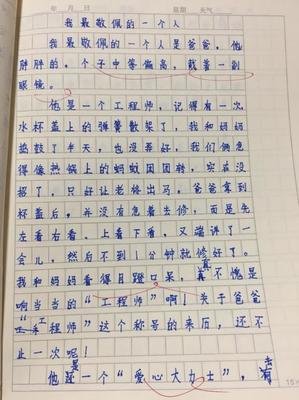 年 月 日 星期 天气
我最敬佩的一个人
我最敬佩的一个人是爸爸，他
胖胖的。个子中等偏高，戴着一副
眼镜。
他是一个工程师，记得有一次
水杯盖上的弹簧散架了，我和妈妈
热鼓了半天，也没弄好，我们俩急
得像热锅上的蚂蚁团团转，实在没
招了，只好让老将出马。爸爸拿到
杯盖后，并没有急着去修，而是先
左看右看、上看下看，又端详了一
会儿，然后不到1分钟就修好了。
我和妈妈看得目瞪口呆，真不愧是
响当当的“工程师”啊！关于爸爸
“工程师”这个称号的来历，还不
止一次呢！
他还是一个“爱心大力士”，